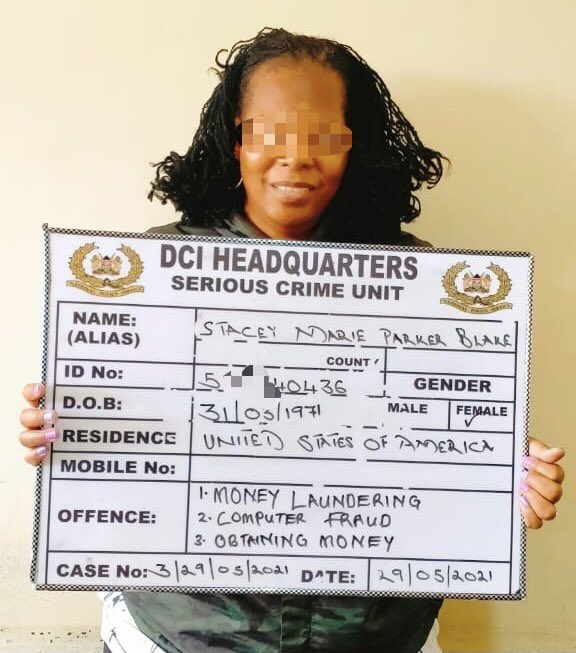 DCI HEADQUARTERS
SERIOUS CRIME UNIT
NAME: (ALIAS) STACEY MARIE PARKER BLAKE
COUNT
ID No: 5 40436 GENDER
D.O.B: 31/05/1971 MALE FEMALE ✓
RESIDENCE UNITED STATES OF AMERICA
MOBILE No:
OFFENCE: 1. MONEY LAUNDERING
2. COMPUTER FRAUD
3. OBTAINING MONEY
CASE No: 3/29/05/2021 DATE: 29/05/2021